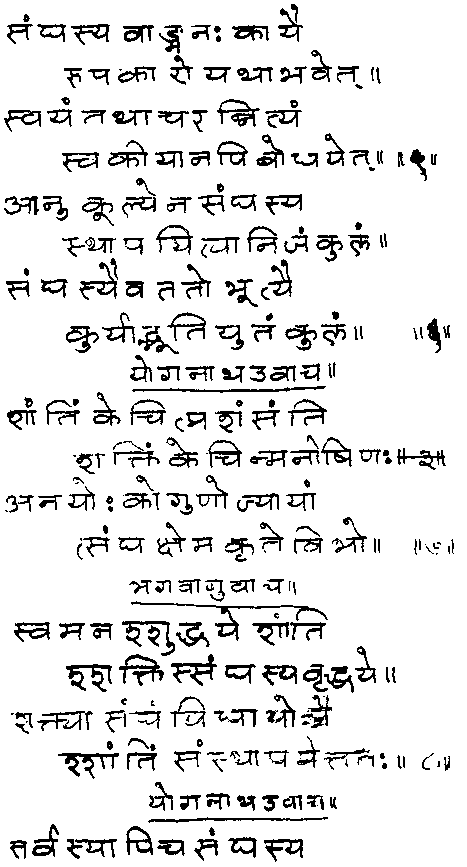 संघस्य वाङ्मनः कायै
रुपकारो यथा भवेत् ॥
स्वयं तथा चरन्नित्यं
स्वकीयानपि बोधयेत् ॥
आनुकूल्येन संघस्य
स्थापयित्वा निजं कुलं ॥
संघस्यैव ततो भूत्यै
कुर्याद्भूतियुतं कुलं ॥
योगनाथ उवाच ॥
शांतिं केचित्प्रशंसंति
शक्तिं केचिन्मनीषिणः ॥
अनयोः को गुणो ज्यायां
त्संघक्षेमकृते विभो ॥
भगवानुवाच ॥
स्वमनश्शुद्धये शांति
श्शक्तिस्संघस्य वृद्धये ॥
शक्त्या संघं विधायोच्चै
श्शांतिं संस्थापयेत्ततः ॥
योगनाथ उवाच ॥
सर्वस्यापि च संघस्य